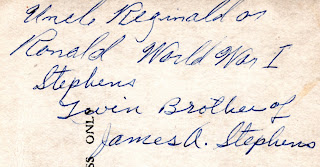 Uncle Reginald or
Ronald World War I
Stephens
Twin Brother of
James A. Stephens
SS ONL